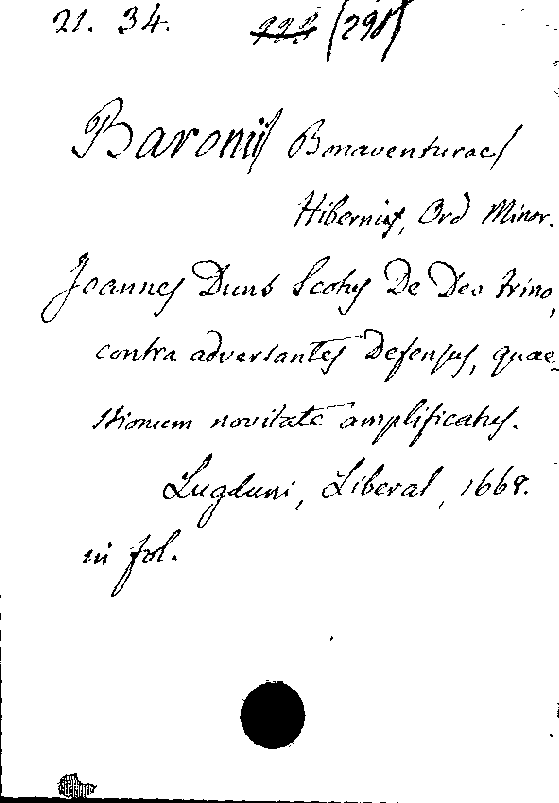 21. 34. 222 (298)
Baronii Bonaventurae
Hiberni, Ord Minor.
Joannes Duns Scotus De Deo trino,
contra adversantes Defensus, quae-
stionum novitate amplificatus.
Lugduni, Liberal, 1668.
in fol.